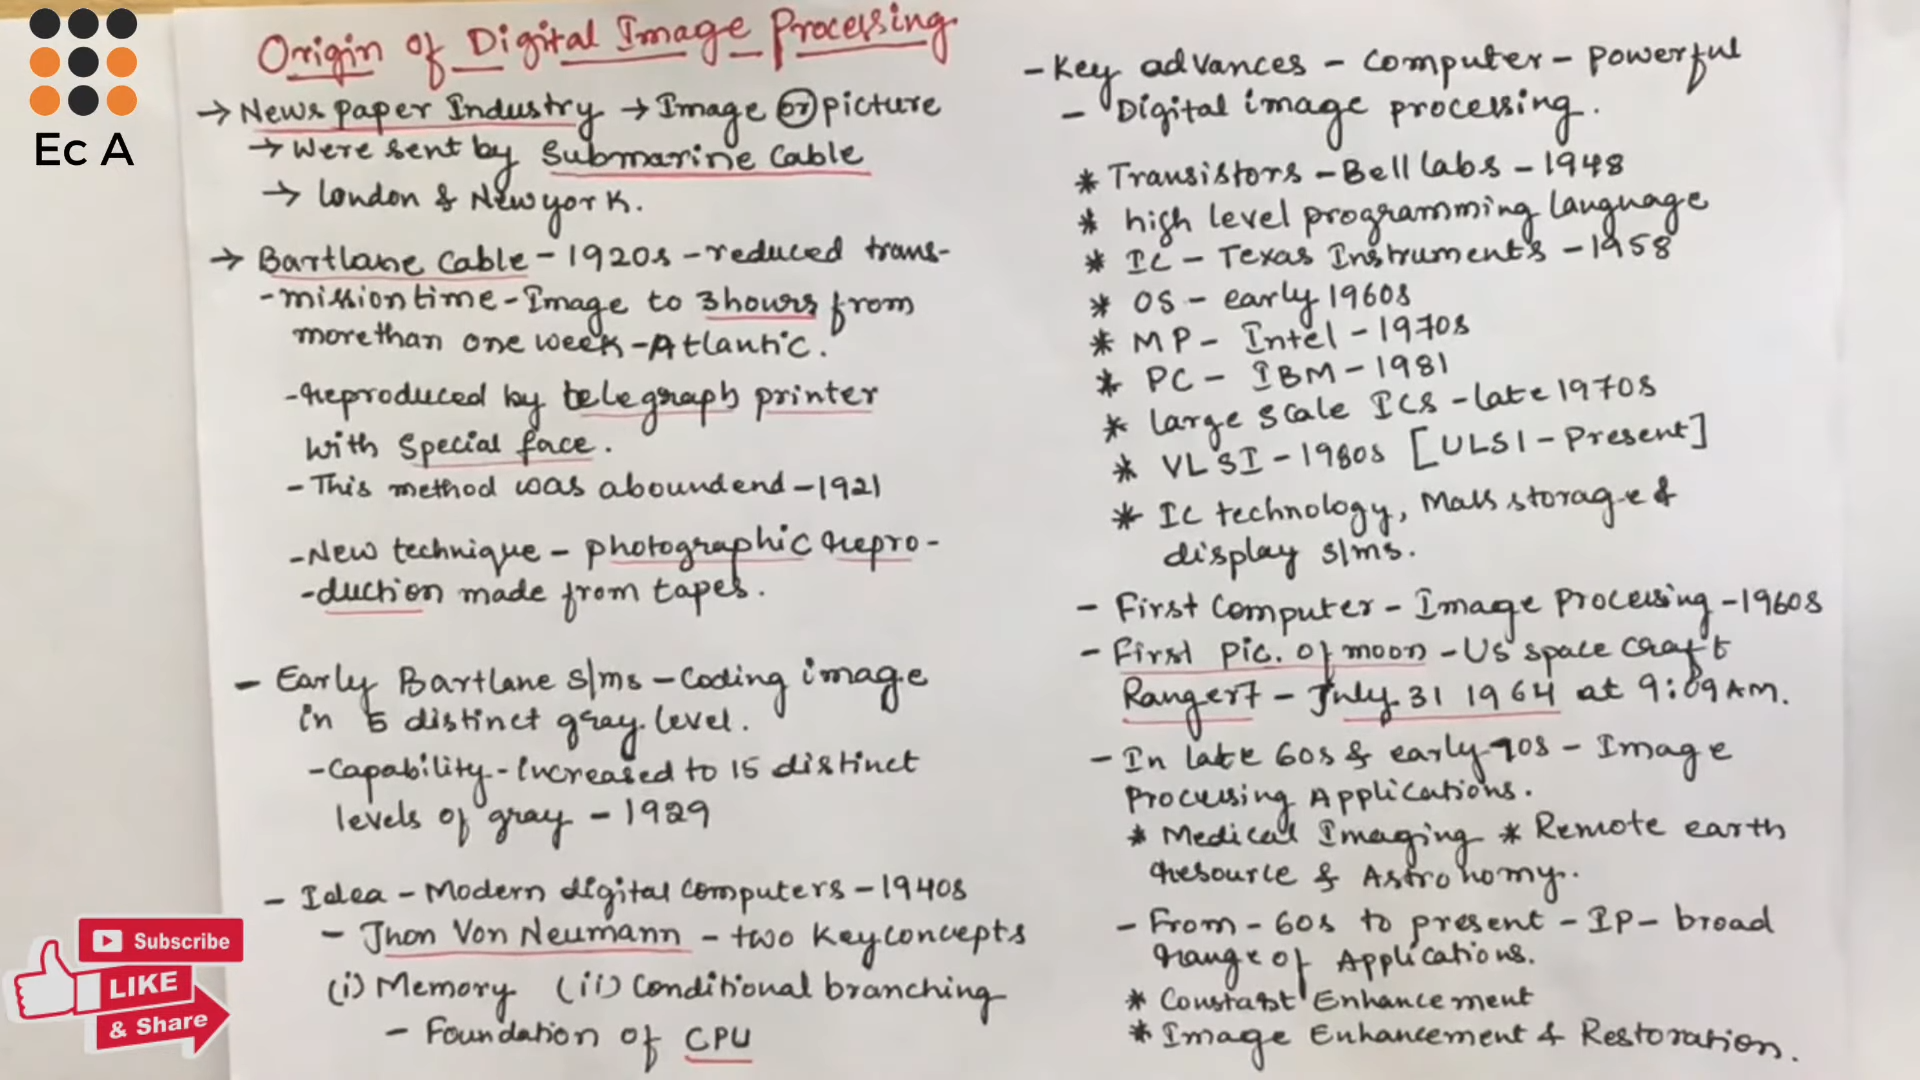 Ec A
Origin of Digital Image Processing
→ News paper Industry → Image or picture
→ Were sent by Submarine Cable
→ London & Newyork.
→ Bartlane Cable - 1920s - reduced trans-
-mission time - Image to 3 hours from
more than one week - Atlantic.
- Reproduced by telegraph printer
with Special face.
- This method was aboundend - 1921
- New technique - photographic repro-
-duction made from tapes.
- Early Bartlane s/ms - Coding image
in 5 distinct gray level.
- Capability - increased to 15 distinct
levels of gray - 1929
- Idea - Modern digital Computers - 1940s
- Jhon Von Neumann - two Key concepts
(i) Memory (ii) Conditional branching
- Foundation of CPU
- Key advances - Computer - powerful
- Digital image processing.
* Transistors - Bell labs - 1948
* high level programming language
* IC - Texas Instruments - 1958
* OS - early 1960s
* MP - Intel - 1970s
* PC - IBM - 1981
* large scale ICs - late 1970s
* VLSI - 1980s [ULSI - Present]
* IC technology, Mass storage &
display s/ms.
- First Computer - Image Processing - 1960s
- First pic. of moon - US space craft
Ranger7 - July 31 1964 at 9:09 AM.
- In late 60s & early 70s - Image
Processing Applications.
* Medical Imaging * Remote earth
resource & Astronomy.
- From - 60s to present - IP - broad
range of Applications.
* Constast Enhancement
* Image Enhancement & Restoration.
Subscribe
LIKE
& Share